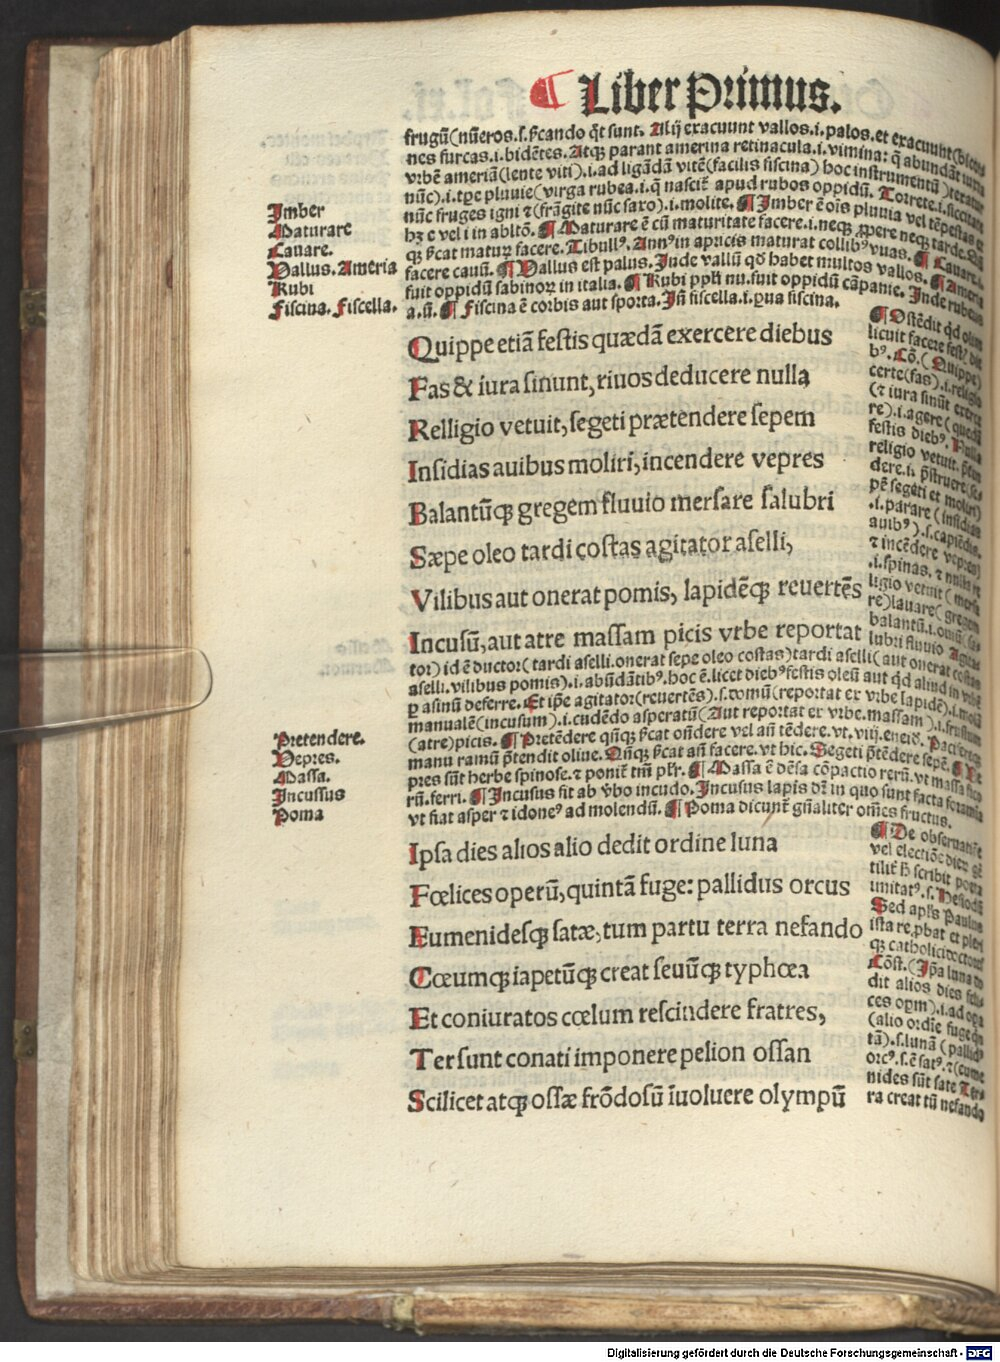 ¶ Liber Primus.
frugū(nūeros.s.p̄cando q̄t sunt. Alij exacuunt vallos.i.palos.et exacuunt(bicor
nes furcas.i.bidētes.Atqȝ parant amerina retinacula.i.vimina: q̄ abundāt iuxta
vrbē ameriā(lente viti).i.ad ligādā vitē(facilis fiscina) hoc instrumentū)teratur
nūc).i.tpe pluuie(virga rubea.i.q nascit̄ apud rubos oppidū. Torrete.i.siccitate
nūc fruges igni ⁊(frāgite nūc saxo).i.molite. ¶ Imber ē oīs pluuia vel tēpestas
hȝ e vel i in abltō. ¶ Maturare ē cū maturitate facere.i.neqȝ propere neqȝ tarde.
qȝ p̄cat matur̄ facere. Tibullꝰ. Annꝰ in apricis maturat collibꝰ vuas. ¶ Lauare.i.
facere cauū. ¶ Vallus est palus. Inde vallū qd̄ habet multos vallos. ¶ Ameria
fuit oppidū sabinoꝝ in italia. ¶ Rubi pp̄li nu.fuit oppidū cāpanie. Inde rubeus
a.ū. ¶ Fiscina ē corbis aut sporta. In̄ fiscella.i.ꝑua fiscina.
Imber
Maturare
Cauare.
Vallus. Ameria
Rubi
Fiscina. Fiscella.
Quippe etiā festis quædā exercere diebus
Fas & iura sinunt, riuos deducere nulla
Relligio vetuit, segeti prætendere sepem
Insidias auibus moliri, incendere vepres
Balantūqȝ gregem fluuio mersare salubri
Sæpe oleo tardi costas agitator aselli,
Vilibus aut onerat pomis, lapidēqȝ reuertēs
Incusū, aut atre massam picis vrbe reportat
¶ Ostēdit qd olim
licuit facere festꝭ die
bꝰ. Cō. (Quippe)
certe(fas).i.religio
(⁊ iura sinūt exerce
re).i.agere (quedā
festis diebꝰ. Nulla
religio vetuit. p̄ten
dere.i. p̄struere(se
pē segeti et moliri)
.i.parare (insidias
auibꝰ).s.capiēdis.
⁊ incēdere vepres)
.i.spinas. ⁊ nulla re
ligio vetuit (mersa
re)lauare( gregem
balantū.i.ouiū (sa
lubri fluuio Agita
tor) id ē ductor( tardi aselli.onerat sepe oleo costas)tardi aselli( aut onerat costas
aselli.vilibus pomis).i.abūdātibꝰ.hoc ē.licet diebꝰ festis oleū aut qd aliud in vrbē
ꝑ asinū deferre. Et ip̄e agitator(reuertēs).s.domū(reportat ex vrbe lapidē).i.molā
manualē(incusum).i.cudēdo asperatū(Aut reportat ex vrbe.massam).i.frustum
(atre)picis. ¶ Pretēdere qn̄qȝ p̄cat ondere vel an̄ tēdere. vt.viij.eneid. Paciferqȝ
manu ramū p̄tendit oliue. Qn̄qȝ p̄cat an̄ facere.vt hic. Segeti p̄tēdere sepē. ¶ Ve
pres sūt herbe spinose.⁊ ponit̄ tm̄ pl̄r. ¶ Massa ē dēsa cōpactio rerū. vt massa fico
rū.ferri. ¶ Incusus fit ab v̄bo incudo. Incusus lapis dr̄ in quo sunt facta foramīa
vt fiat asper ⁊ idoneꝰ ad molendū. ¶ Poma dicunt̄ gn̄aliter om̄es fructus.
Pretendere.
Vepres.
Massa.
Incussus
Poma
Ipsa dies alios alio dedit ordine luna
Fœlices operū, quintā fuge: pallidus orcus
Eumenidesqȝ satæ, tum partu terra nefando
Cœumqȝ iapetūqȝ creat seuūqȝ typhœa
Et coniuratos cœlum rescindere fratres,
Ter sunt conati imponere pelion ossan
Scilicet atqȝ ossæ frōdosū iuoluere olympū
¶ De obseruatiōe
vel electiōe dieꝝ gē
tiliū h̄ scribit poeta
imitatꝰ.s. Hesiodū
Sed apl̄s Paulus
ista reꝓbat et pleri
qȝ catholici doctores
Cōst. (Ipa luna de
dit alios dies feli
ces opm).i.ad opa
(alio ordīe fuge qn
tā).s.lunā ( pallidꝰ
orcꝰ.s.ē satꝰ.⁊(eume
nides sūt sate Ter
ra creat tū nefando
Digitalisierung gefördert durch die Deutsche Forschungsgemeinschaft - DFG